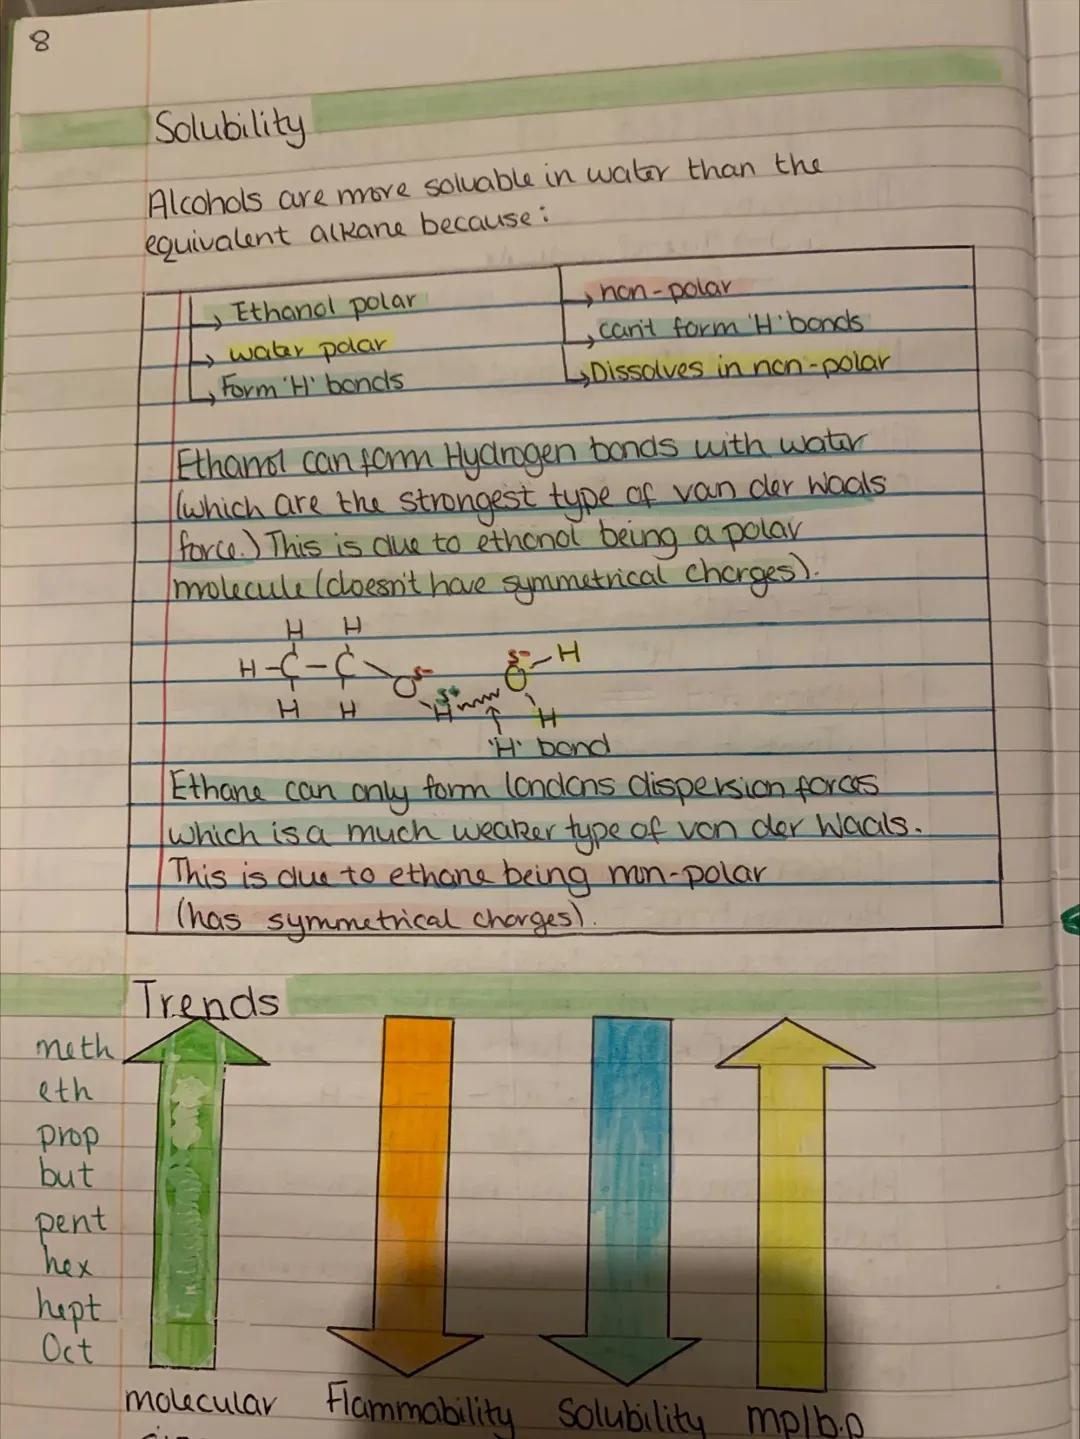 8
Solubility
Alcohols are more soluable in water than the
equivalent alkane because:
↳ Ethanol polar
↳ water polar
↳ Form 'H' bonds
↳ non-polar
↳ can't form 'H' bonds
↳ Dissolves in non-polar
Ethanol can form Hydrogen bonds with water
(which are the strongest type of van der Waals
force.) This is due to ethanol being a polar
molecule (doesn't have symmetrical charges).
H H
H-C-C O δ- δ- O-H
H H δ+ H H
'H' bond
Ethane can only form londons dispersion forces
which is a much weaker type of van der Waals.
This is due to ethane being non-polar
(has symmetrical charges).
Trends
meth
eth
prop
but
pent
hex
hept
Oct
molecular Flammability Solubility mp/b.p